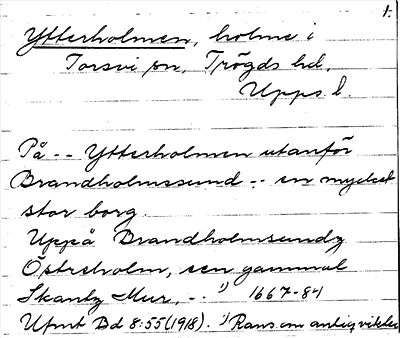 1.
Ytterholmen, holme i
Torsvi sn, Trögds hd,
Upps. l.
På -- Ytterholmen utanför
Brandholmssund -- en mycket
stor borg.
Uppå Brandholmsundz
Östreholm, een gammal
Skantz Mur, -- 1) 1667-84
Ufmt Bd 8:55 (1918). 1) Rans. om antiqviteter